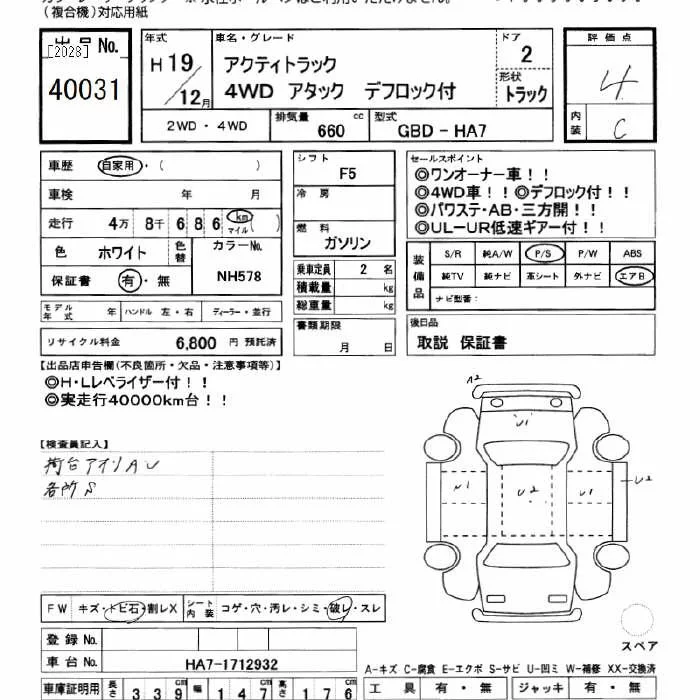 (複合機)対応用紙
出品No.
[2028]
40031
年式
H 19/12月
車名・グレード
アクティトラック
4WD アタック デフロック付
ドア
2
形状
トラック
評価点
4
内装
C
2WD・4WD
排気量
660 cc
型式
GBD-HA7
車歴 自家用・( )
車検 年 月
走行 4万 8千 6 8 6 km マイル ( )
色 ホワイト 色替 カラーNo. NH578
保証書 有・無
モデル年式 年 ハンドル 左・右 ディーラー・並行
リサイクル料金 6,800 円 預託済
シフト F5
冷房
燃料
ガソリン
乗車定員 2 名
積載量 kg
総重量 kg
書類期限
月 日
セールスポイント
◎ワンオーナー車!!
◎4WD車!!◎デフロック付!!
◎パワステ・AB・三方開!!
◎UL-UR低速ギアー付!!
装備品
S/R 純A/W P/S P/W ABS
純TV 純ナビ 革シート 外ナビ エアB
ナビ型番:
後日品
取説 保証書
【出品店申告欄(不良箇所・欠品・注意事項等)】
◎H・Lレベライザー付!!
◎実走行40000km台!!
【検査員記入】
荷台アオリAU
各所S
A2
U1
U1
U2
U1
U2
スペア
FW キズ・トビ石・割レX シート内装 コゲ・穴・汚レ・シミ・破レ・スレ
登録No.
車台No. HA7-1712932
A-キズ C-腐食 E-エクボ S-サビ U-凹ミ W-補修 XX-交換済
車庫証明用 長さ 3 3 9 cm 幅 1 4 7 cm 高さ 1 7 6 cm
工具 有・無 ジャッキ 有・無